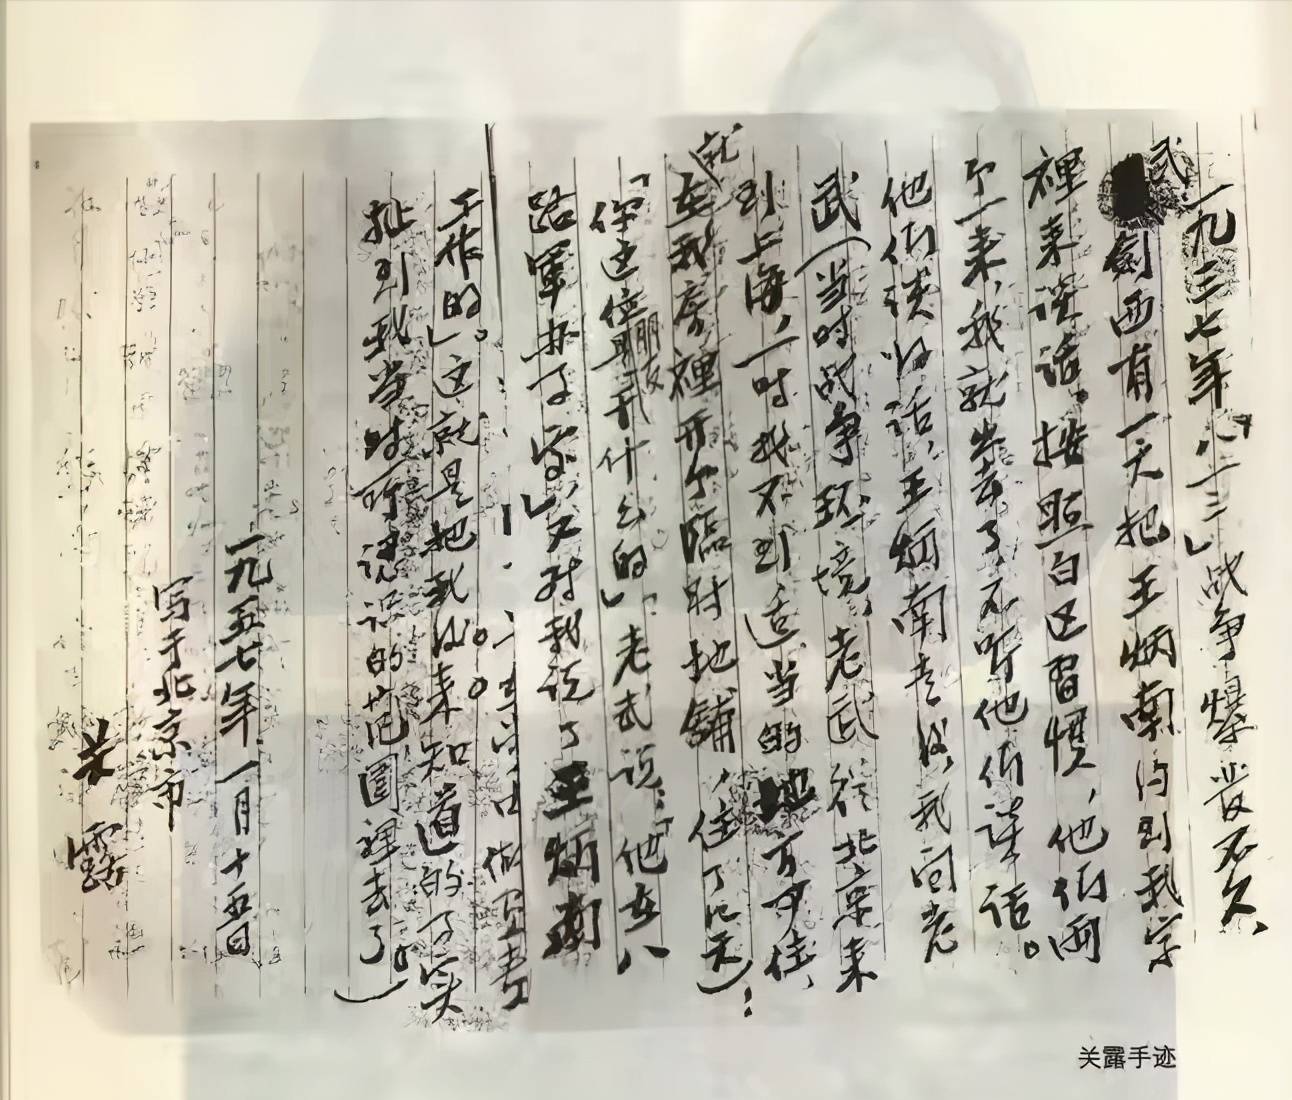 一九三七年「八一三」战争爆发不久，
武剑西有一天把王炳南约到我家
裡来谈话。按照白区习惯，他们两
个一来，我就出去了，不听他们谈话。
他们谈好话，王炳南走后，我问老
武（当时战争环境，老武从北京来
到上海，一时找不到适当的地方可住，
就在我房裡开个临时地铺，住了几天）：
「你这位朋友干什么的」老武说：「他在八
路军办事
工作的」。这就是把我后来知道的事实
扯到我当时所说话的范围裡去了。）
一九五七年一月十五日
写于北京市
关露
关露手迹